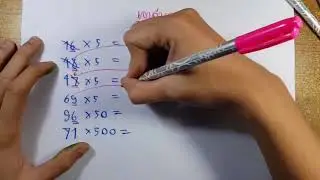 46 × 5 =
48 × 5 =
47 × 5 =
69 × 5 =
96 × 50 =
71 × 500 =